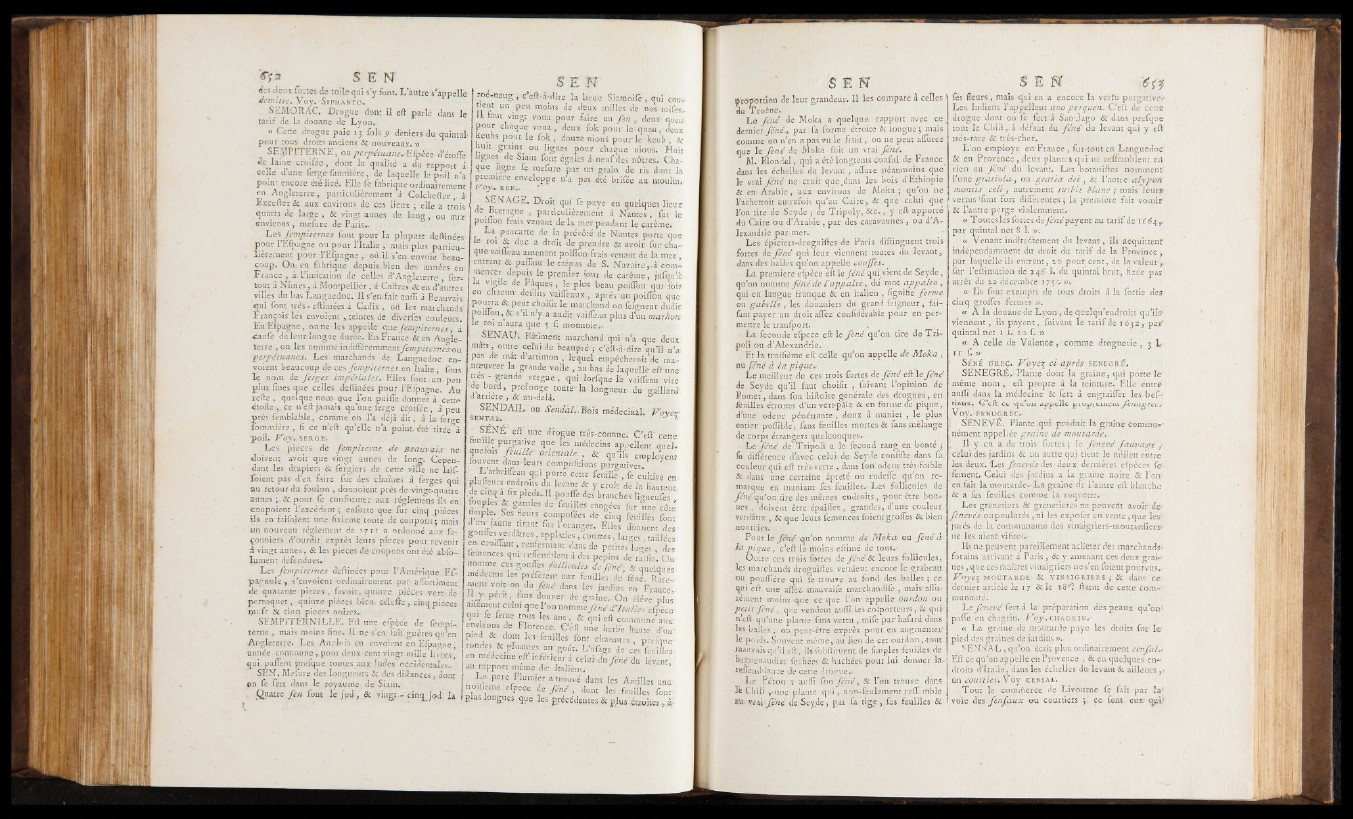 652 S E N
des deux ſortes de toile qui s'y font. L'autre s'appelle
demitte. Voy. SIPHANTO.
SEMORAC. Drogue dont il eſt parlé dans le
tarif de la douane de Lyon.
« Cette drogue paie 13 ſols 9 deniers du quintal
pour tous droits anciens & nouveaux. »
SEMPITERNE, ou perpétuane. Eſpèce d'étoffe
de laine croiſée, dont la qualité a du rapport à
celle d'une ſerge ſaumière, de laquelle le poil n'a
point encore été licé. Elle ſe fabrique ordinairement
en Angleterre, particulièrement à Colcheſter, à
Exceſter & aux environs de ces lieux ; elle a trois
quarts de large, & vingt aunes de long, ou aux
environs, meſure de Paris.
Les ſempiternes ſont pour la plupart deſtinées
pour l'Eſpagne ou pour l'Italie, mais plus particu-
lièrement pour l'Eſpagne, où il s'en envoie beau-
coup. On en fabrique depuis bien des années en
France, à l'imitation de celles d'Angleterre, ſur-
tout à Niſmes, à Montpellier, à Caſtres & en d'autres
villes du bas Languedoc. Il s'en fait auſſi à Beauvais
qui ſont très-eſtimées à Cadix, où les marchands
François les envoient, teintes de diverſes couleurs.
En Eſpagne, on ne les appelle que ſempiternes, à
cauſe de leur longue durée. En France & en Angle-
terre, on les nomme indifféremment ſempiternes ou
perpétuanes. Les marchands de Languedoc en-
voient beaucoup de ces ſempiternes en Italie, ſous
le nom de ſerges impériales. Elles ſont un peu
plus fines que celles deſtinées pour l'Eſpagne. Au
reſte, quelque nom que l'on puiſſe donner à cette
étoffe, ce n'eſt jamais qu'une ſerge croiſée, à peu
près ſemblable, comme on l'a déjà dit, à la ſerge
ſommière, ſi ce n'eſt qu'elle n'a point été tirée à
poil. Voy. SERGE.
Les pièces de ſempiterne de Beauvais ne
doivent avoir que vingt aunes de long. Cepen-
dant les drapiers & ſergiers de cette ville ne laiſ-
ſoient pas d'en faire ſur des chaînes à ſerges qui
au retour du foulon, donnoient près de vingt-quatre
aunes ; & pour ſe conformer aux réglemens ils en
coupoient l'excédent ; enſorte que ſur cinq pièces
ils en faiſoient une ſixième toute de coupons ; mais
un nouveau réglement de 1711 a ordonné aux fa-
çonniers d'ourdir exprès leurs pièces pour revenir
à vingt aunes, & les pièces de coupons ont été abſo-
lument défendues.
Les ſempiternes deſtinées pour l'Amérique Eſ-
pagnole, s'envoient ordinairement par aſſortiment
de quarante pièces, ſavoir, quinze pièces verd de
perroquet, quinze pièces bleu céleſte, cinq pièces
muſc & cinq pièces noires.
SEMPITERNILLE. Eſt une eſpèce de ſempi-
terne, mais moins fine. Il ne s'en fait guères qu'en
Angleterre. Les Anglois en envoient en Eſpagne,
année commune, pour deux cent vingt mille livres,
qui paſſent preſque toutes aux Indes occidentales.
SEN. Meſure des longueurs & des diſtances, dont
on ſe ſert dans le royaume de Siam.
Quatre ſen font le jod, & vingt-cinq jod la
S E N
roé-neug, c'eſt-à-dire la lieue Siamoiſe, qui con-
tient un peu moins de deux milles de nos toiſes.
Il faut vingt voua pour faire un ſen, deux quen
pour chaque voua, deux ſok pour le quen, deux
keubs pour le ſok, douze nious pour le keub, &
huit grains ou lignes pour chaque nious. Huit
lignes de Siam ſont égales à neuf des nôtres. Cha-
que ligne ſe meſure par un grain de ris dont la
première enveloppe n'a pas été briſée au moulin.
Voy. KEN.
SENAGE. Droit qui ſe paye en quelques lieux
de Bretagne, particulièrement à Nantes, ſur le
poiſſon frais venant de la mer pendant le carême.
La pancarte de la prévôté de Nantes porte que
le roi & duc a droit de prendre & avoir ſur cha-
que vaiſſeau amenant poiſſon frais venant de la mer,
entrant & paſſant le trépas de S. Nazaire, à com-
mencer depuis le premier jour de carême, juſqu'à
la vigile de Pâques, le plus beau poiſſon qui ſoit
en chacun deſdits vaiſſeaux, après un poiſſon que
pourra & peut choiſir le marchand ou ſeigneur dudit
poiſſon, & s'il n'y a audit vaiſſeau plus d'un marhou
le roi n'aura que 5 ſ. monnoie.
SENAU. Bâtiment marchand qui n'a que deux
mâts, outre celui de beaupré ; c'eſt-à-dire qu'il n'a
pas de mât d'artimon, lequel empêcheroit de ma-
nœuvrer la grande voile, au bas de laquelle eſt une
très-grande vergue, qui lorſque le vaiſſeau vire
de bord, prolonge toute la longueur du gaillard
d'arrière, & au-delà.
SENDAIL ou Sendal. Bois médecinal. Voyez
SENTAL.
SÉNÉ eſt une drogue très-connue. C'eſt cette
feuille purgative que les médecins appellent quel-
quefois feuille orientale, & qu'ils employent
ſouvent dans leurs compoſitions purgatives.
L'arbriſſeau qui porte cette feuille, ſe cultive en
pluſieurs endroits du levant & y croît de la hauteur
de cinq à ſix pieds. Il pouſſe des branches ligneuſes,
ſouples & garnies de feuilles rangées ſur une côte
ſimple. Ses fleurs compoſées de cinq feuilles ſont
d'un jaune tirant ſur l'oranger. Elles donnent des
gouſſes verdâtres, applaties, courtes, larges, taillées
en croiſſant, renfermant dans de petites loges, des
ſemences qui reſſemblent à des pepins de raiſin. On
nomme ces gouſſes follicules de ſéné, & quelques
médecins les préfèrent aux feuilles de ſéné. Rare-
ment voit-on du ſéné dans les jardins en France.
Il y périt, ſans donner de graine. On élève plus
aiſément celui que l'on nomme ſéné d'Italie, eſpèce
qui ſe ſeme tous les ans, & qui eſt commune aux
environs de Florence. C'eſt une herbe haute d'un
pied & dont les feuilles ſont charnues, preſque
rondes & gluantes au goût. L'uſage de ces feuilles
en médecine eſt inférieur à celui du ſéné du levant,
au rapport même des Italiens.
Le père Plumier a trouvé dans les Antilles une
troiſième eſpèce de ſéné, dont les feuilles ſont
plus longues que les précédentes & plus étroites, à
S E N
proportion de leur grandeur. Il les compare à celles
du Troëne.
Le ſéné de Moka a quelque rapport avec ce
dernier ſéné, par ſa forme étroite & longue ; mais
comme on n'en a pas vu le fruit, on ne peut aſſurer
que le ſéné de Moka ſoit un vrai ſéné.
M. Blondel, qui a été longtems conſul de France
dans les échelles du levant, aſſure néanmoins que
le vrai ſéné ne croît que dans les bois d'Ethiopie
& en Arabie, aux environs de Moka ; qu'on ne
l'achetoit autrefois qu'au Caire, & que celui que
l'on tire de Seyde, de Tripoly, &c., y eſt apporté
du Caire ou d'Arabie, par des caravannes, ou d'A-
lexandrie par mer.
Les épiciers-droguiſtes de Paris diſtinguent trois
ſortes de ſéné qui leur viennent toutes du levant,
dans des balles qu'on appelle couffes.
La première eſpèce eſt le ſéné qui vient de Seyde,
qu'on nomme ſéné de l'appalte, du mot appalto,
qui en langue franque & en italien, ſignifie ferme
ou gabelle, les douaniers du grand ſeigneur, fai-
ſant payer un droit aſſez conſidérable pour en per-
mettre le tranſport.
La ſeconde eſpèce eſt le ſéné qu'on tire de Tri-
poli ou d'Alexandrie.
Et la troiſième eſt celle qu'on appelle de Moka,
ou ſéné à la pique.
Le meilleur de ces trois ſortes de ſéné eſt le ſéné
de Seyde qu'il faut choiſir, ſuivant l'opinion de
Pomet, dans ſon hiſtoire générale des drogues, en
feuilles étroites d'un vert-pâle & en forme de pique,
d'une odeur pénétrante, doux à manier, le plus
entier poſſible, ſans feuilles mortes & ſans mélange
de corps étrangers quelconques.
Le ſéné de Tripoli a le ſecond rang en bonté ;
ſa différence d'avec celui de Seyde conſiſte dans ſa
couleur qui eſt très-verte, dans ſon odeur très-foible
& dans une certaine âpreté ou rudeſſe qu'on re-
marque en maniant ſes feuilles. Les follicules de
ſéné qu'on tire des mêmes endroits, pour être bon-
nes, doivent être épaiſſes, grandes, d'une couleur
verdâtre, & que leurs ſemences ſoient groſſes & bien
nourries.
Pour le ſéné qu'on nomme de Moka ou ſéné à
la pique, c'eſt le moins eſtimé de tous.
Outre ces trois ſortes de ſéné & leurs follicules,
les marchands droguiſtes vendent encore le grabeau
ou pouſſière qui ſe trouve au fond des balles ; ce
qui eſt une aſſez mauvaiſe marchandiſe, mais aſſu-
rément moins que ce que l'on appelle ourdon ou
petit ſéné, que vendent auſſi les colporteurs, & qui
n'eſt qu'une plante ſans vertu, miſe par haſard dans
les balles, ou peut-être exprès pour en augmenter
le poids. Souvent même, au lieu de cet ourdon, tout
mauvais qu'il eſt, ils ſubſtituent de ſimples feuilles de
baguenaudier ſechées & hachées pour lui donner la
reſſemblance de cette drogue.
Le Pérou a auſſi ſon ſéné, & l'on trouve dans
le Chili, une plante qui, non-ſeulement reſſemble
au vrai ſéné de Seyde, par ſa tige, ſes feuilles &
S E N 653
ſes fleurs, mais qui en a encore la vertu purgative.
Les Indiens l'appellent uno perquen. C'eſt de cette
drogue dont on ſe ſert à San-Jago & dans preſque
tout le Chili, à défaut du ſéné du levant qui y eſt
très-rare & très-cher.
L'on employe en France, ſur-tout en Languedoc
& en Provence, deux plantes qui ne reſſemblent en
rien au ſéné du levant. Les botaniſtes nomment
l'une gratiola, ou gratia dei, & l'autre alypon
montis ceti, autrement turbit blanc ; mais leurs
vertus ſont fort différentes ; la première fait vomir
& l'autre purge violemment.
« Toutes les ſortes de ſéné payent au tarif de 1664,
par quintal net 8 l. ».
« Venant indirectement du levant, ils acquittent
indépendamment du droit du tarif de la Province,
par laquelle ils entrent, 20 pour cent, de la valeur,
ſur l'eſtimation de 246 l. du quintal brut, fixée par
arrêt du 22 décembre 1750 ».
« Ils ſont exempts de tous droits à la ſortie des
cinq groſſes fermes ».
« A la douane de Lyon, de quelqu'endroits qu'ils
viennent, ils payent, ſuivant le tarif de 1632, par
quintal net 1 l. 10 ſ. »
« A celle de Valence, comme droguerie, 3 l.
11 ſ. »
SÉNÉ GREC. Voyez ci après SENEGRÉ.
SENEGRÉ. Plante dont la graine, qui porte le
même nom, eſt propre à la teinture. Elle entre
auſſi dans la médecine & ſert à engraiſſer les beſ-
tiaux. C'eſt ce qu'on appelle proprement fenugrec.
Voy. FENUGREC.
SENEVÉ. Plante qui produit la graine commu-
nément appellée graine de moutarde.
Il y en a de trois ſortes ; le ſenevé ſauvage,
celui des jardins & un autre qui tient le milieu entre
les deux. Les ſenevés des deux dernières eſpèces ſe
ſement. Celui des jardins a la graine noire & l'on
en fait la moutarde. La graine de l'autre eſt blanche
& a ſes feuilles comme la roquette.
Les grenetiers & grenetières ne peuvent avoir de
ſenevés ou poulardés, ni les expoſer en vente, que les
jurés de la communauté des vinaigriers-moutardiers
ne les aient viſités.
Ils ne peuvent pareillement acheter des marchands
forains arrivant à Paris, & y amenant ces deux grai-
nes, que ces maîtres vinaigriers ne s'en ſoient pourvus.
Voyez MOUTARDE & VINAIGRIERS ; & dans ce
dernier article le 17 & le 18e ſtatut de cette com-
munauté.
Le ſenevé ſert à la préparation des peaux qu'on
paſſe en chagrin. Voy. CHAGRIN.
« La graine de moutarde paye les droits ſur le
pied des graines de jardins ».
SENSAL, qu'on écrit plus ordinairement cenſal.
Eſt ce qu'on appelle en Provence, & en quelques en-
droits d'Italie, dans les échelles du levant & ailleurs,
un courtier. Voy CENSAL.
Tout le commerce de Livourne ſe fait par la
voie des ſenſaux ou courtiers ; ce ſont eux qui